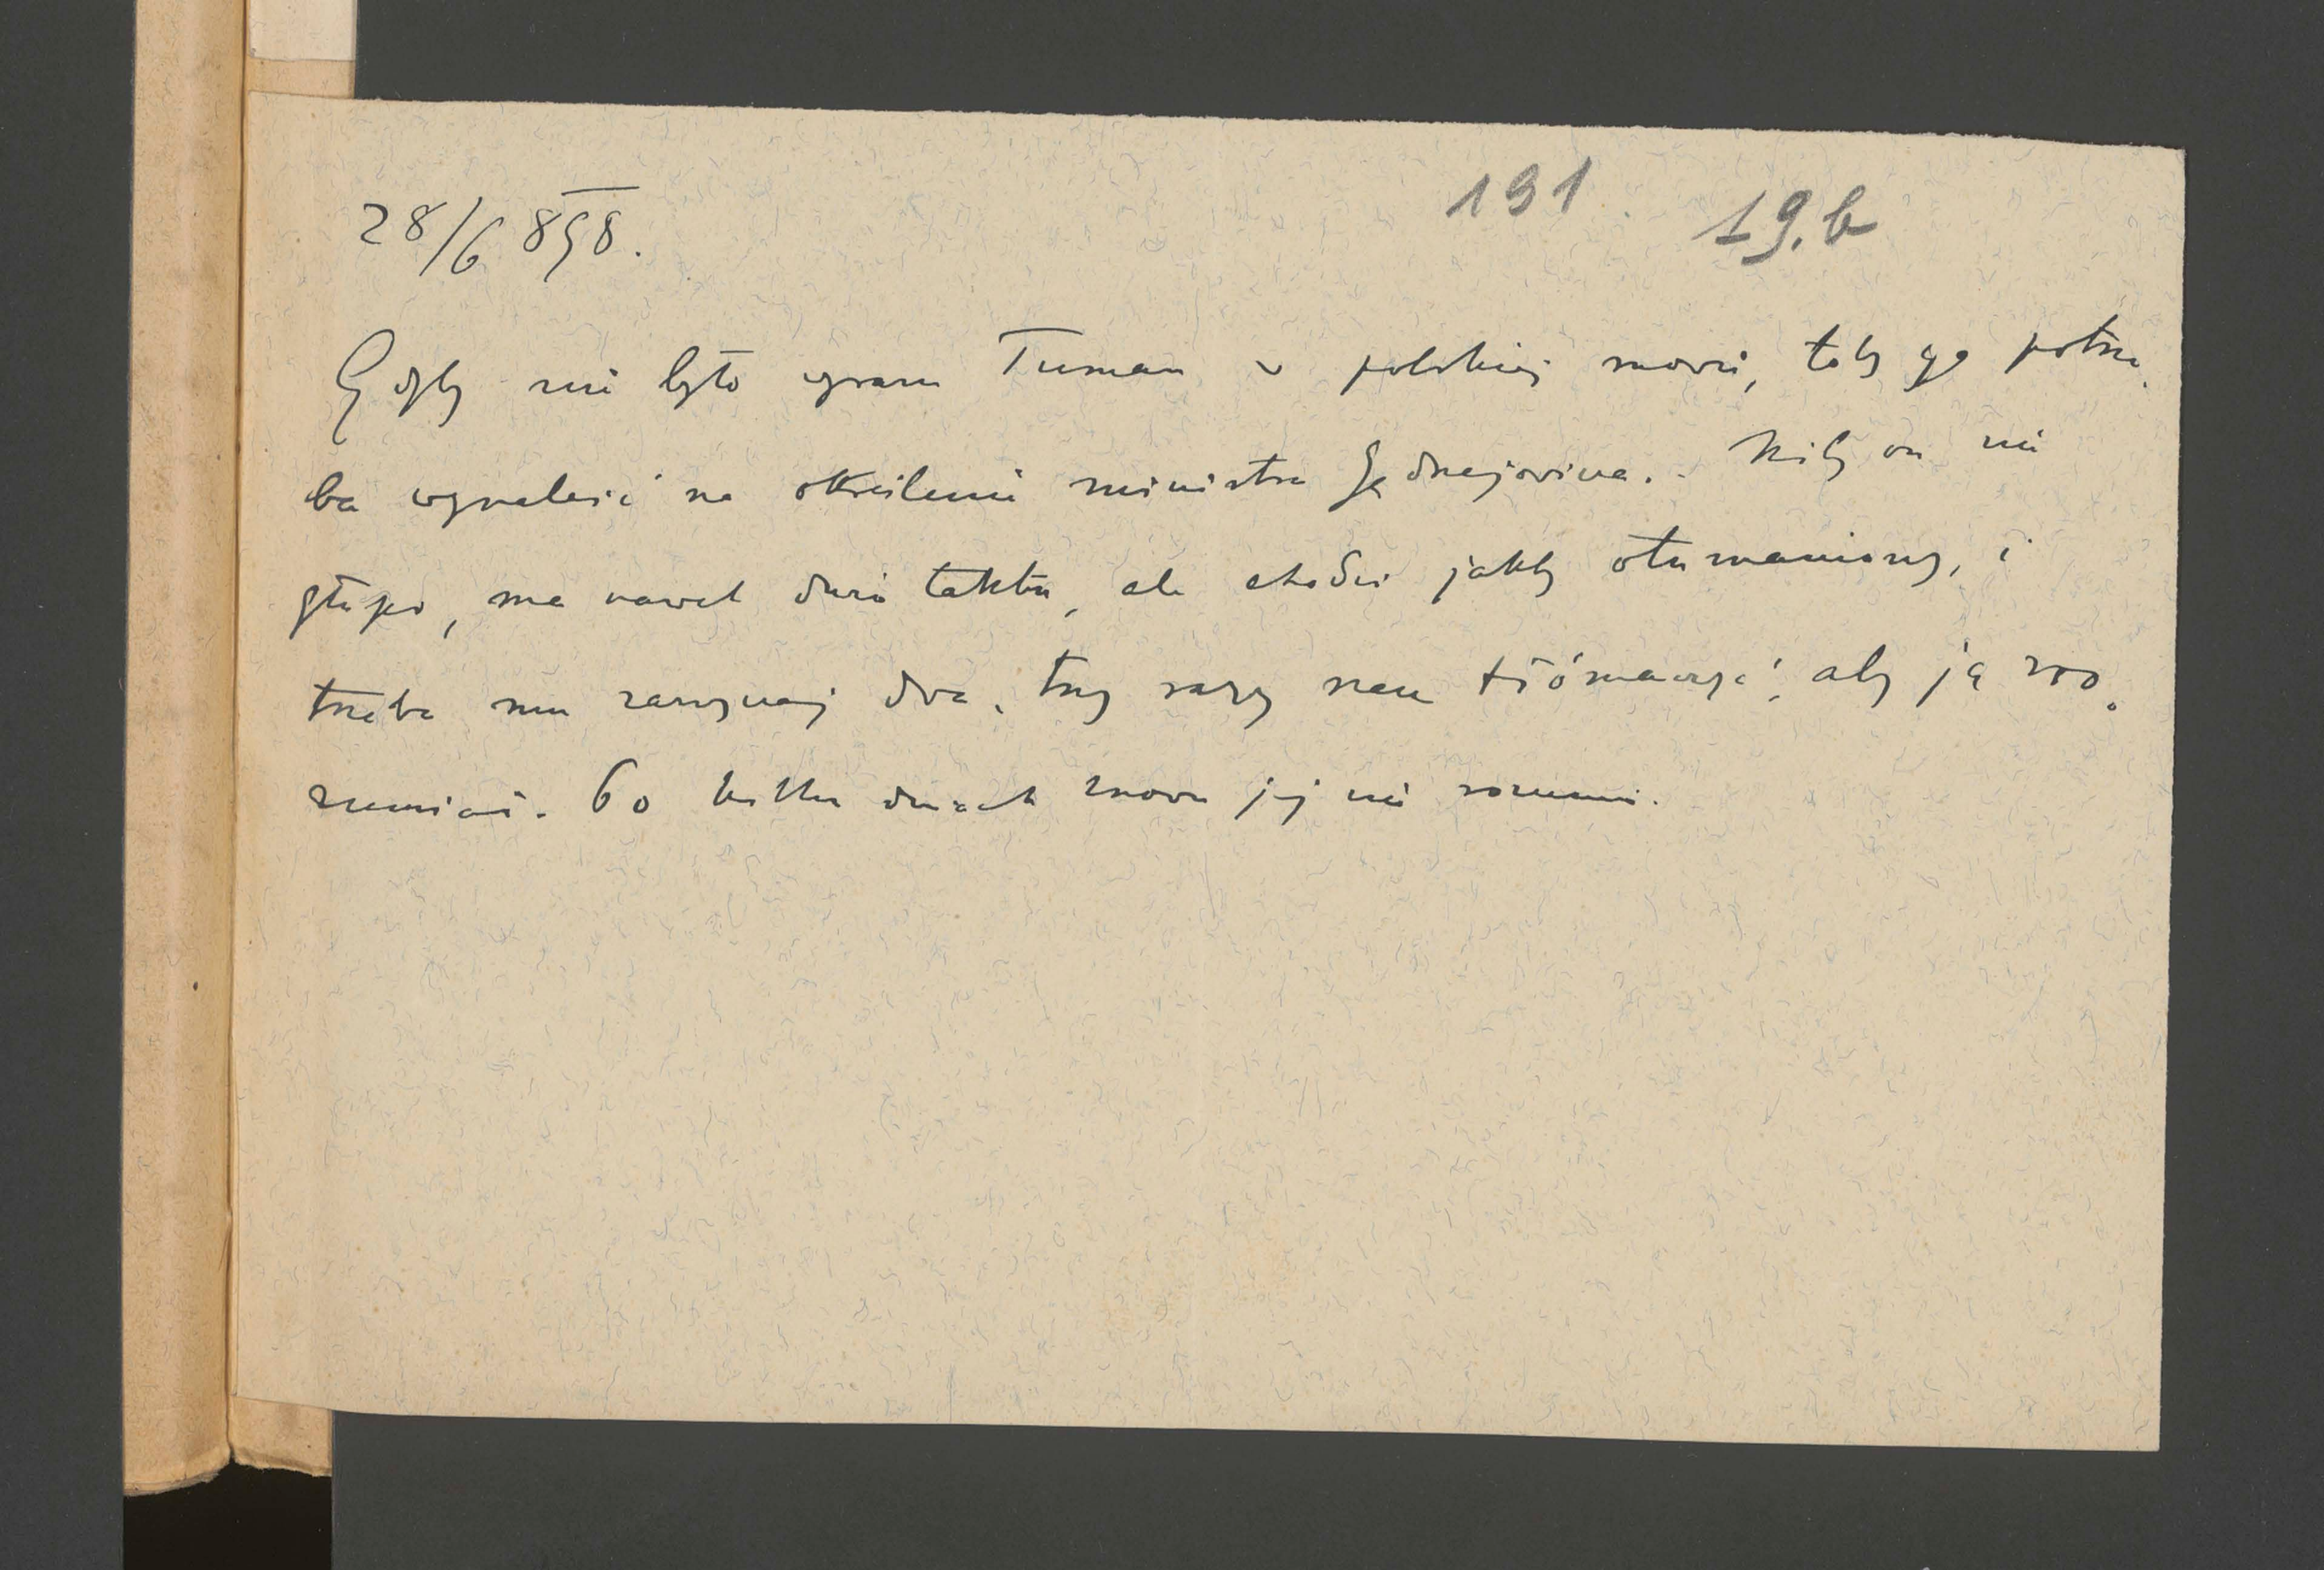 28/6 898.
191
19.b
Gdyby nie było wyrazu Tuman w polskiej mowie, toby go potrze-
ba wynaleść na określenie ministra Jędrzejovicza. Niby on nie
głupi, ma nawet dużo taktu, ale chodzi jakby otumaniony, i
trzeba mu zazwyczaj dwa, trzy razy rzecz tłómaczyć, aby ją zro-
zumiał. Po kilku dniach znowu jej nie rozumie.